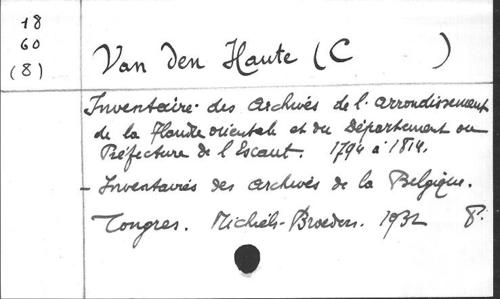 18
60
(8)
Van den Haute (C )
Inventaire des archives de l'arrondissement
de la Flandre orientale et du Département ou
Préfecture de l'Escaut. 1794 à 1814.
- Inventaires des archives de la Belgique.
Tongres. Michiels-Broeders. 1932 8°.